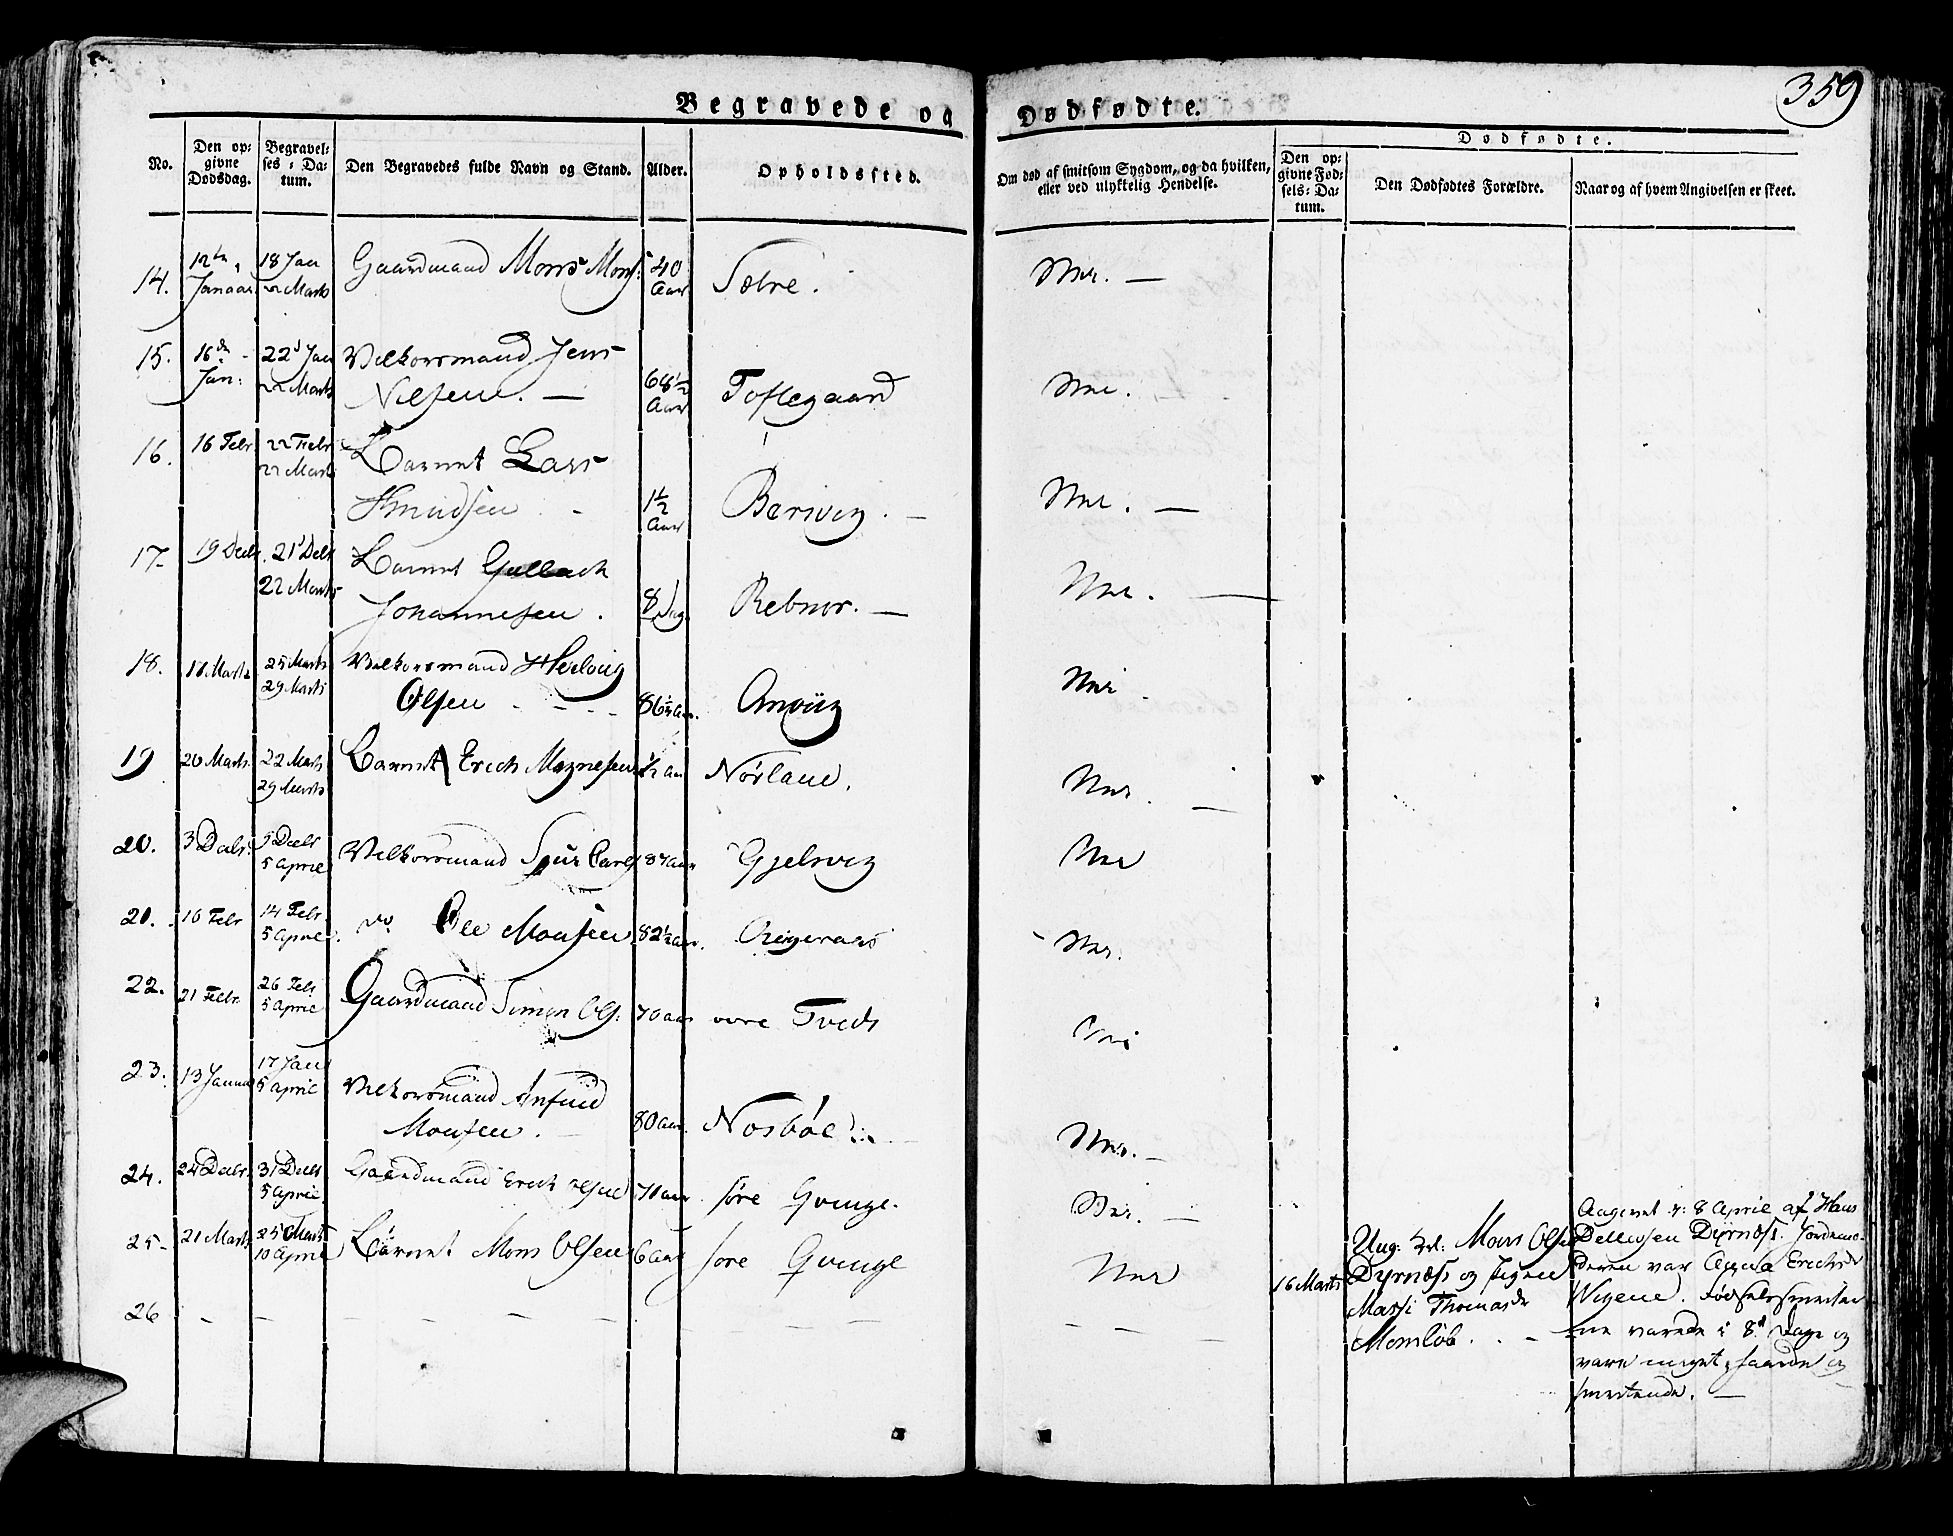 359
Begravede og Dødfødte.
No.
Den op=
givne
Dødsdag.
Begravel=
ses = Da=
tum.
Den Begravedes fulde Navn og Stand.
Alder.
Opholdssted.
Om død af smitsom Sygdom, og da hvilken,
eller ved ulykkelig Hendelse.
Dødfødte.
Den op=
givne Fød=
sels= Da=
tum.
Den Dødfødtes Forældre.
Naar og af hvem Angivelsen er skeet.
14. 12te Januar 18 Jan 22 Marts Gaardmand Mons Mons: 40 Aar Sætre.
15. 16de Jan: 22d Jan 22 Marts Vilkorsmand Jens
Nilsen. — 68½ Aar Toftegaard
16. 16 Febr 22 Febr 22 Marts Barnet Lars
Knudsen 1½ Aar Berivig. —
17. 19 Decbr. 21d Decbr 22 Marts Barnet Gulbach
Johannesen. 8 Dag. Rebnor. —
18. 18 Marts 25 Marts 29 Marts Vilkorsmand Herloug
Olsen 86½ Aar.
19 20 Marts 22 Marts 29 Marts Barnet Erich Mognesen ½ Aar Nörlann.
20. 3 Decbr: 9 Decbr 5 April Vilkorsmand 87 Aar Gjelsvig
21. 10 Febr 14 Febr. 5 April. do Ole Monsen 82½ Aar.
22. 21 Febr. 26 Febr 5 April Gaardmand Simon Ols: 70 Aar øvre Tveds
23. 13 Januar 17 Jan 5 April Vilkorsmand Anfind
Monsen. — 80 Aar. Nosböe
24. 24 Decbr. 31 Decbr 5 April. Gaardmand Erich Olsen 71 Aar søre Qvinge.
25. 21 Marts 25 Marts 10 April Barnet Mons Olsen 6 Aar søre Qvinge
26 — — — — — —
16 Marts
Ung: Mons Olsen
Dyrnæss og Pigen
Massi Thomasdr
Momlöb. —
Angivet d: 8 April af Hans
Dyrnæss. Jordemo-
deren var Anna Erichsdr
Wigene. Fødselssmerter-
ne varede i 8te Dage og
vare meget haarde og
smertende. —